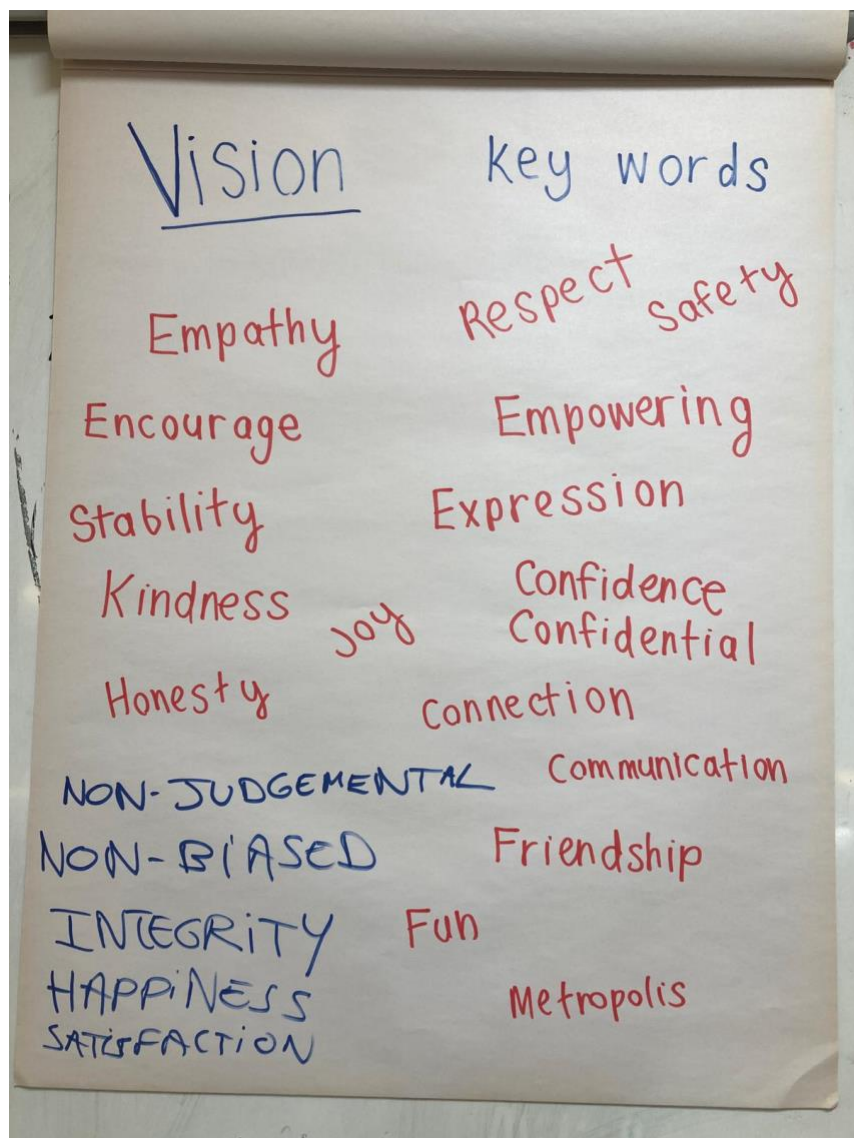 Vision key words
Respect Safety
Empathy
Encourage Empowering
Stability Expression
Kindness Joy Confidence
Confidential
Honesty Connection
NON-JUDGEMENTAL Communication
NON-BIASED Friendship
INTEGRITY Fun
HAPPINESS Metropolis
SATISFACTION